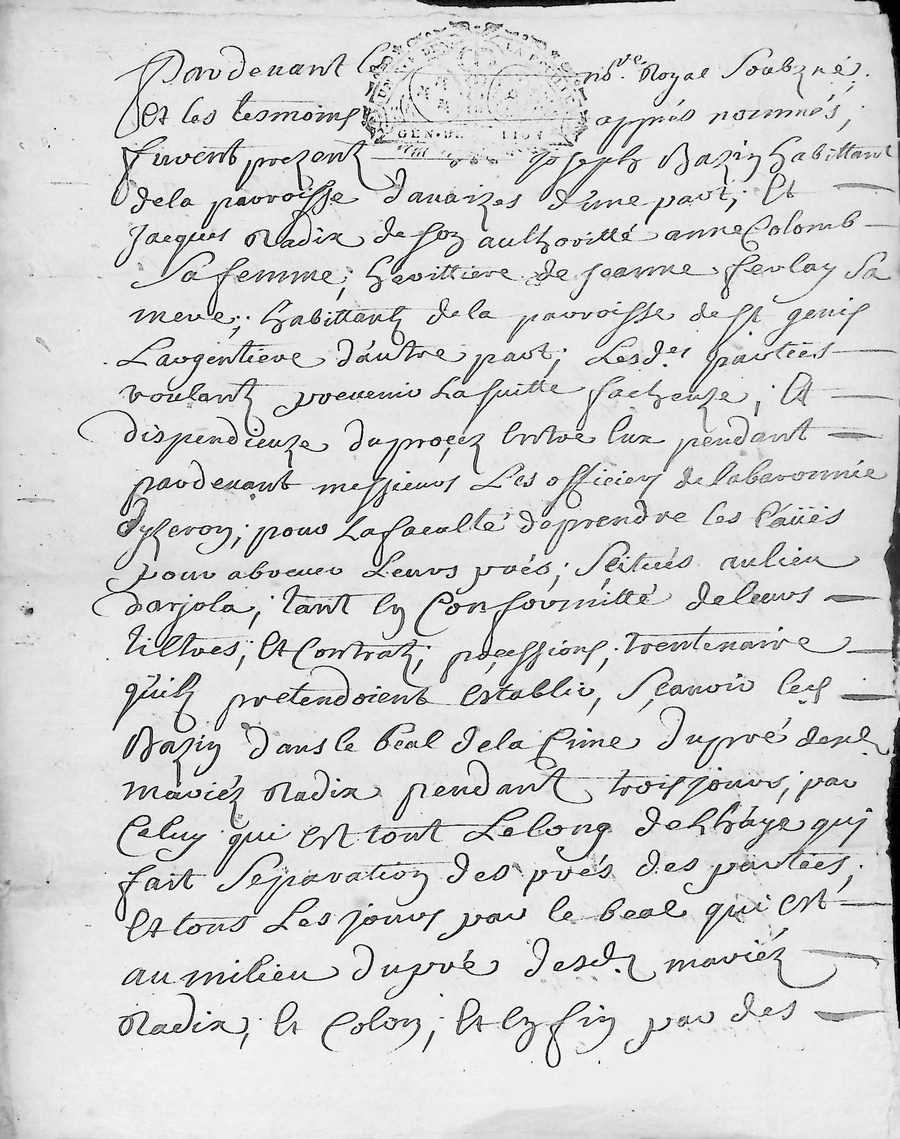 Pardevant le no.re Royal Soubzné,
Et les tesmoins appnés nommés,
GEN. DE LION
furent prezent Joseph Bazin habittant
dela parroisse davaizes d'une part, Et
Jacques Radix de son authoritté anne Colomb
Sa femme, herittiere de Jeanne ferlay Sa
mere, habittants dela parroisse de St genis
Largentiere d'autre part, Lesdes partées
voulant prevenir La suitte facheuze, Et
dispendieuze du proçez Entre Eux pendant
pardevant messieurs Les officiers de labaronnie
dyzeron, pour La faculté deprendre les Eaües
pour abreuer Leurs prés, Scitués au lieu
darjola, tant En Conformitté deleurs
tiltres, Et Contratz, poçessions, trentenaire
quils pretendoient Establir, Sçavoir led
Bazin dans le beal dela Cime dupré desd
mariéz Radix pendant trois jours, par
Celuy qui Est tout Lelong delhaye qui
fait Separation des prés des partées,
Et tous Les jours par le beal qui Est
au milieu dupré desd mariéz
Radix, Et Colon, Et En fin par des